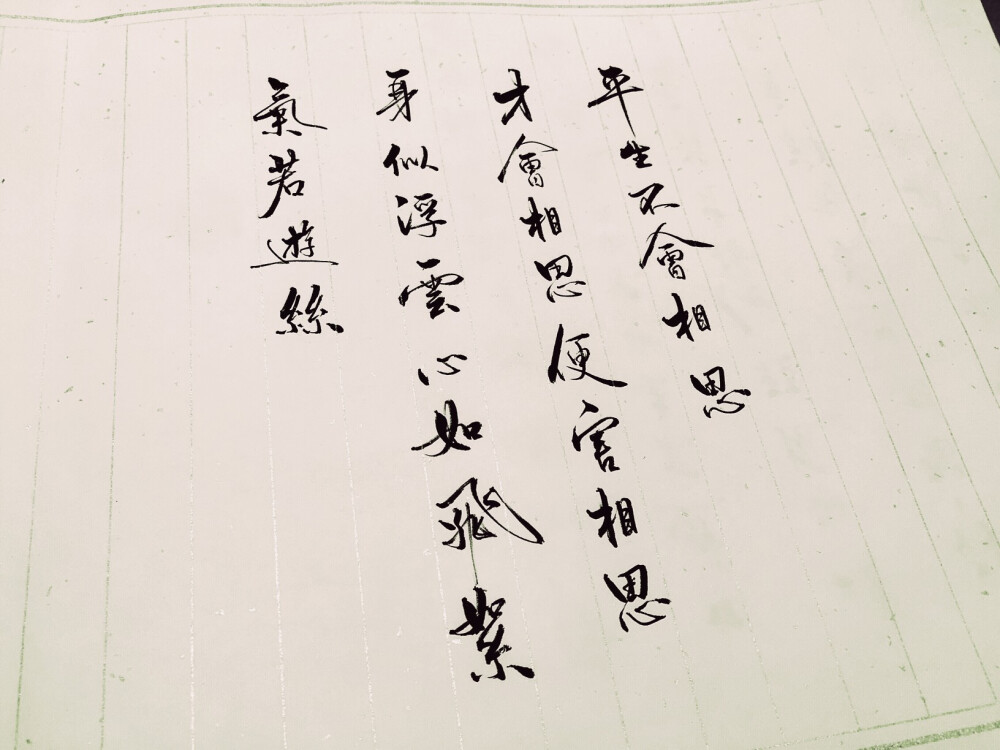 平生不會相思
才會相思便害相思
身似浮雲心如飛絮
氣若遊絲